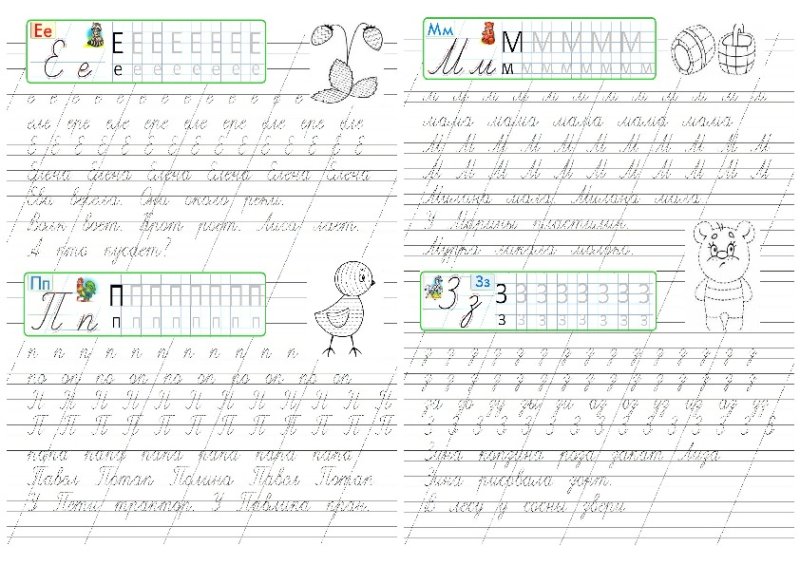 Ее
Е е
Е Е Е Е Е Е Е Е
е е е е е е е е
е е е е е е е е е е е е
еле ере еле ере еле ере еле ере еле
Е Е Е Е Е Е Е Е Е Е Е Е Е Е Е
Елена Елена Елена Елена Елена Елена
Ева ехала. Она около реки.
Волк воет. Крот роет. Лиса лает.
А кто кусает?
Пп
П п
П П П П П П П П П
п п п п п п п п
п п п п п п п п п п п п
по оп по оп по оп по оп
П П П П П П П П П П П П П
П П П П П П П П П П П П П
папа папа папа папа папа папа
Павел Потап Полина Павел Потап
У Пети трактор. У Павлика кран.
Мм
М м
М М М М М М
м м м м м м м м
м м м м м м м м м м м м
мама мама мама мама мама
М М М М М М М М М М М М
М М М М М М М М М М М М
Милана мала. Милана мала.
У Марины пластилин.
Мурка лакала молоко.
Зз
З з
З З З З З З З З
з з з з з з з з
з з з з з з з з з з з з з з
з з з з з з з з з з з з з з
за зо зу зы зи аз оз уз аз аз уз
З З З З З З З З З З З З З З
Зина корзина роза закат Лиза
Зина рисовала зонт.
В лесу у сосны звери